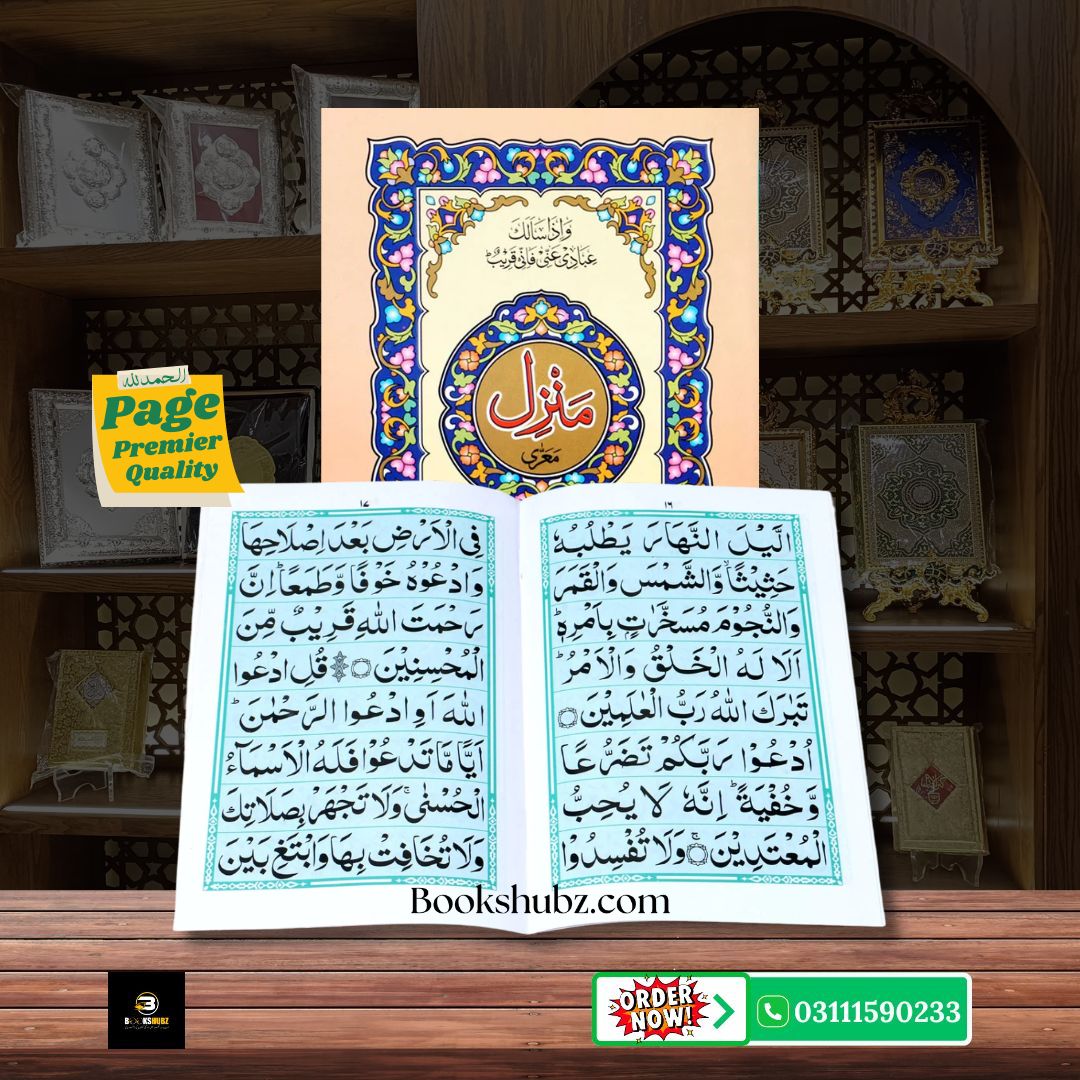 وَاِذَا سَاَلَكَ
عِبَادِىْ عَنِّىْ فَاِنِّىْ قَرِيْبٌ ؕ
مَنْزِل
مَعَرّٰی
الحمدلله
Page
Premier
Quality
١٦
الَّيْلَ النَّهَارَ يَطْلُبُهٗ
حَثِيْثًا ۙ وَّالشَّمْسَ وَالْقَمَرَ
وَالنُّجُوْمَ مُسَخَّرٰتٍۭ بِاَمْرِهٖ ؕ
اَلَا لَهُ الْخَلْقُ وَالْاَمْرُ ؕ
تَبٰرَكَ اللّٰهُ رَبُّ الْعٰلَمِيْنَ ۝
اُدْعُوْا رَبَّكُمْ تَضَرُّعًا
وَّخُفْيَةً ؕ اِنَّهٗ لَا يُحِبُّ
الْمُعْتَدِيْنَ ۝ ۚ وَلَا تُفْسِدُوْا
١٧
فِى الْاَرْضِ بَعْدَ اِصْلَاحِهَا
وَادْعُوْهُ خَوْفًا وَّطَمَعًا ؕ اِنَّ
رَحْمَتَ اللّٰهِ قَرِيْبٌ مِّنَ
الْمُحْسِنِيْنَ ۝ قُلِ ادْعُوا
اللّٰهَ اَوِ ادْعُوا الرَّحْمٰنَ ؕ
اَيًّا مَّا تَدْعُوْا فَلَهُ الْاَسْمَآءُ
الْحُسْنٰى ۚ وَلَا تَجْهَرْ بِصَلَاتِكَ
وَلَا تُخَافِتْ بِهَا وَابْتَغِ بَيْنَ
Bookshubz.com
BOOKSHUBZ
ORDER
NOW!
03111590233